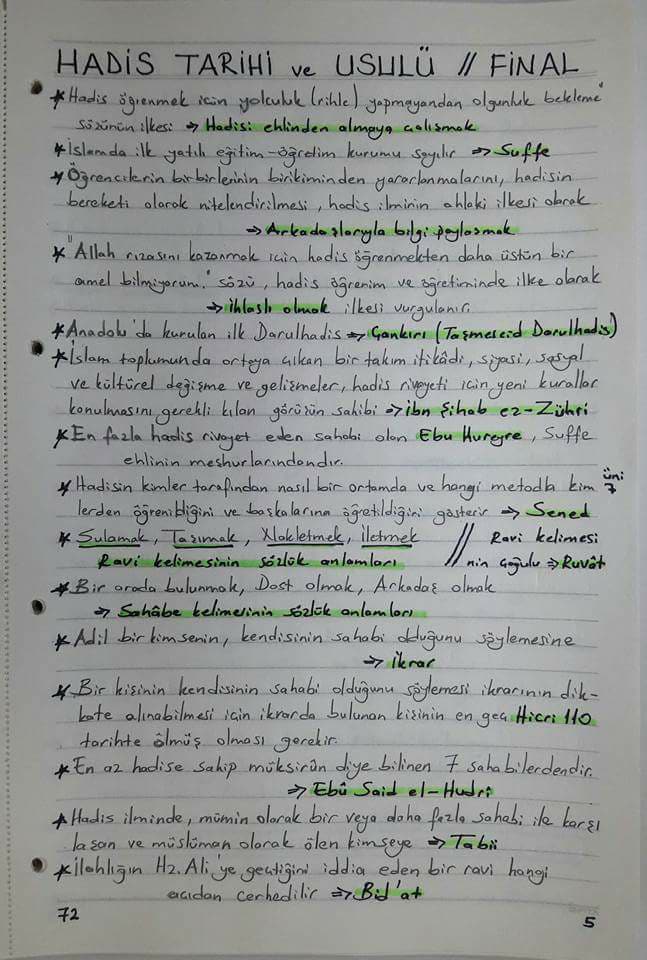 HADİS TARİHİ ve USULÜ // FİNAL
* Hadis öğrenmek için yolculuk (rihle) yapmayandan olgunluk bekleme"
sözünün ilkesi => Hadisi ehlinden almaya çalışmak
* İslamda ilk yatılı eğitim-öğretim kurumu sayılır => Suffe
* Öğrencilerin birbirlerinin birikiminden yararlanmalarını, hadisin
bereketi olarak nitelendirilmesi, hadis ilminin ahlaki ilkesi olarak
=> Arkadaşlarıyla bilgi paylaşmak
* "Allah rızasını kazanmak için hadis öğrenmekten daha üstün bir
amel bilmiyorum." sözü, hadis öğrenim ve öğretiminde ilke olarak
=> İhlaslı olmak ilkesi vurgulanır.
* Anadolu'da kurulan ilk Darulhadis => Çankırı (Taşmescid Darulhadis)
* İslam toplumunda ortaya çıkan bir takım itikâdi, siyasi, sosyal
ve kültürel değişme ve gelişmeler, hadis rivayeti için yeni kurallar
konulmasını gerekli kılan görüşün sahibi => ibn Şihab ez-Zühri
* En fazla hadis rivayet eden sahabi olan Ebu Hureyre, Suffe
ehlinin meşhurlarındandır.
* Hadisin kimler tarafından nasıl bir ortamda ve hangi metodla kim
lerden öğrenildiğini ve başkalarına öğretildiğini gösterir => Sened
üni 7
* Sulamak, Taşımak, Nakletmek, İletmek // Ravi kelimesi
Ravi kelimesinin sözlük anlamları // nin çoğulu => Ruvât
* Bir arada bulunmak, Dost olmak, Arkadaş olmak
=> Sahâbe kelimesinin sözlük anlamları
* Adil bir kimsenin, kendisinin sahabi olduğunu söylemesine
=> İkrar
* Bir kişinin kendisinin sahabi olduğunu söylemesi ikrarının dik-
kate alınabilmesi için ikrarda bulunan kişinin en geç Hicri 110
tarihte ölmüş olması gerekir.
* En az hadise sahip müksirûn diye bilinen 7 sahabilerdendir.
=> Ebû Said el-Hudri
* Hadis ilminde, mümin olarak bir veya daha fazla sahabi ile karşı
laşan ve müslüman olarak ölen kimseye => Tabii
* İlahlığın Hz. Ali'ye geçtiğini iddia eden bir ravi hangi
açıdan cerhedilir => Bid'at
72
5